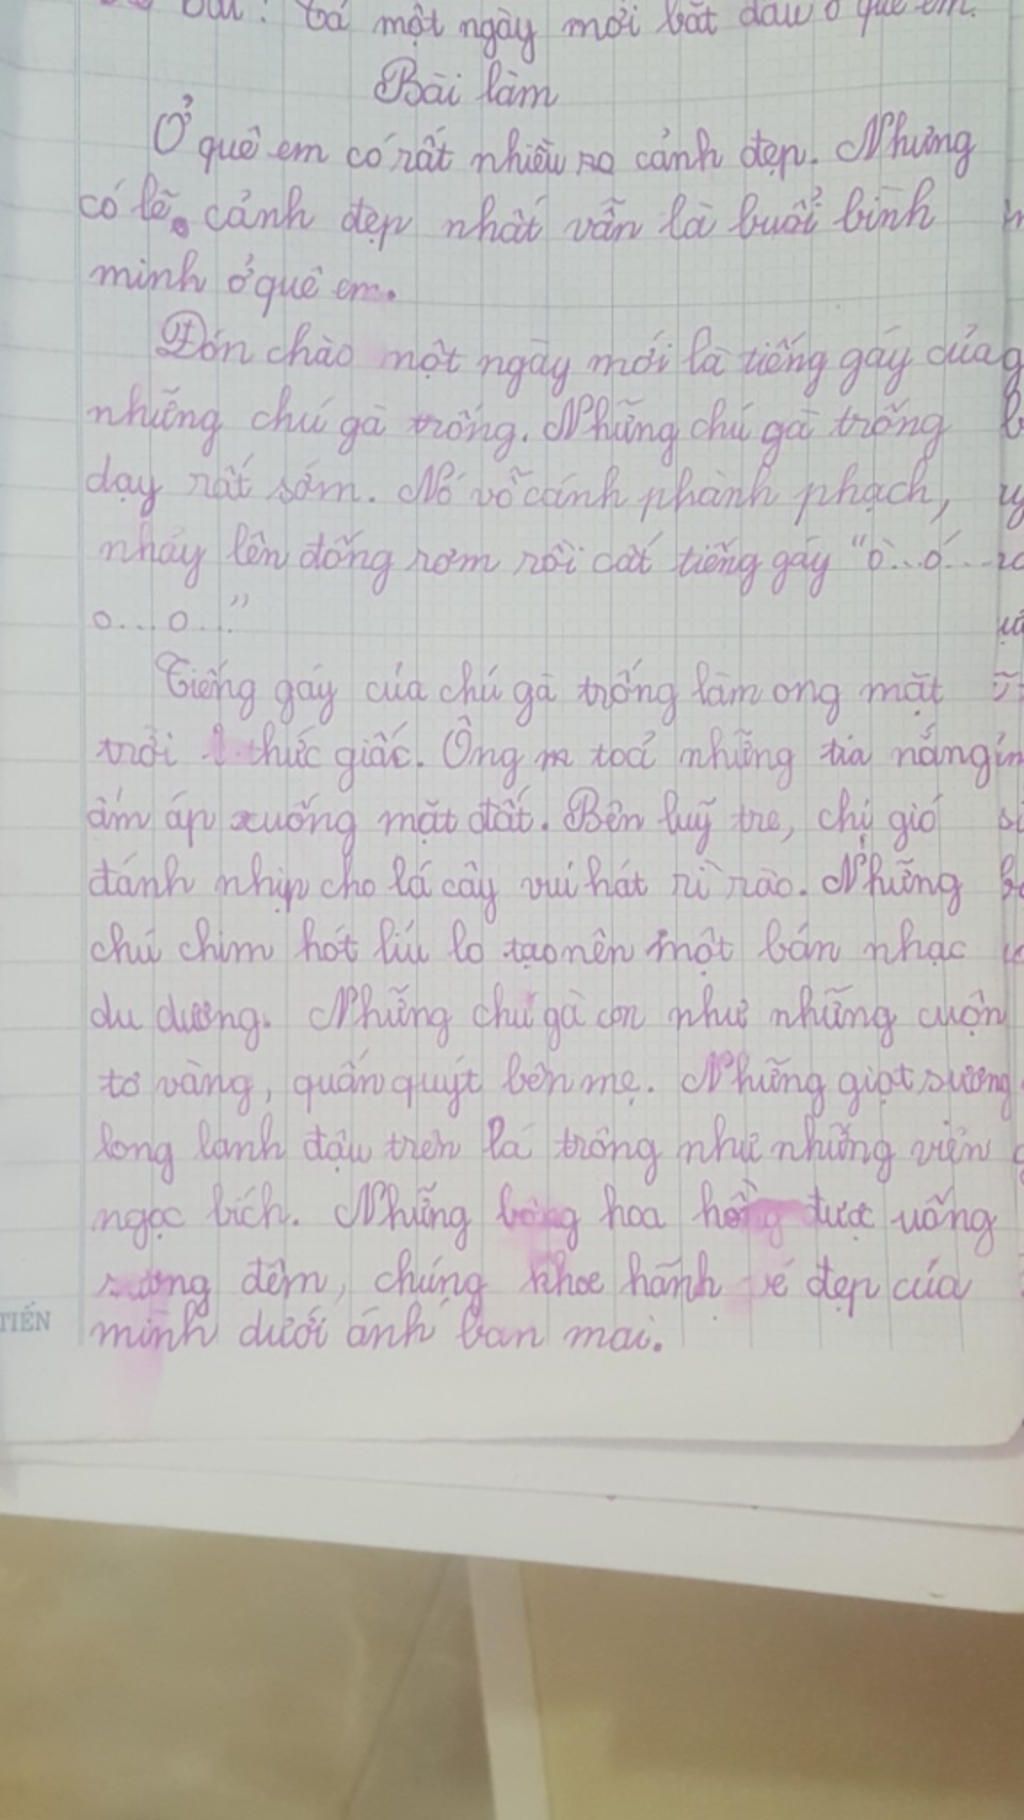 bài: Tả một ngày mới bắt đầu ở quê em.
Bài làm
Ở quê em có rất nhiều cảnh đẹp. Nhưng
có lẽ cảnh đẹp nhất vẫn là buổi bình
minh ở quê em.
Đón chào một ngày mới là tiếng gáy của
những chú gà trống. Những chú gà trống
dạy rất sớm. Nó vỗ cánh phành phạch,
nhảy lên đống rơm rồi cất tiếng gáy "ò...ó...
o...o..."
Tiếng gáy của chú gà trống làm ong mặt
trời thức giấc. Ông toả những tia nắng
ấm áp xuống mặt đất. Bên luỹ tre, chị gió
đánh nhịp cho lá cây vui hát rì rào. Những
chú chim hót líu lo tạo nên một bản nhạc
du dương. Những chú gà con như những cuộn
tơ vàng, quấn quýt bên mẹ. Những giọt sương
long lanh đậu trên lá trông như những viên
ngọc bích. Những bông hoa hồng được uống
sương đêm, chúng khoe hãnh vẻ đẹp của
mình dưới ánh ban mai.
TIẾN